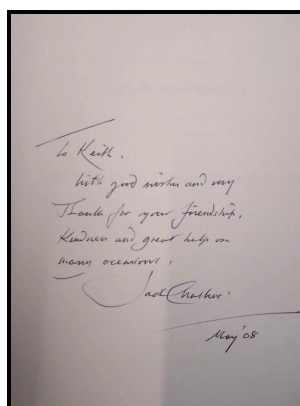 To Keith,
With good wishes and my
Thanks for your friendship,
Kindness and great help on
many occasions,
Jack Chalker.
May '08